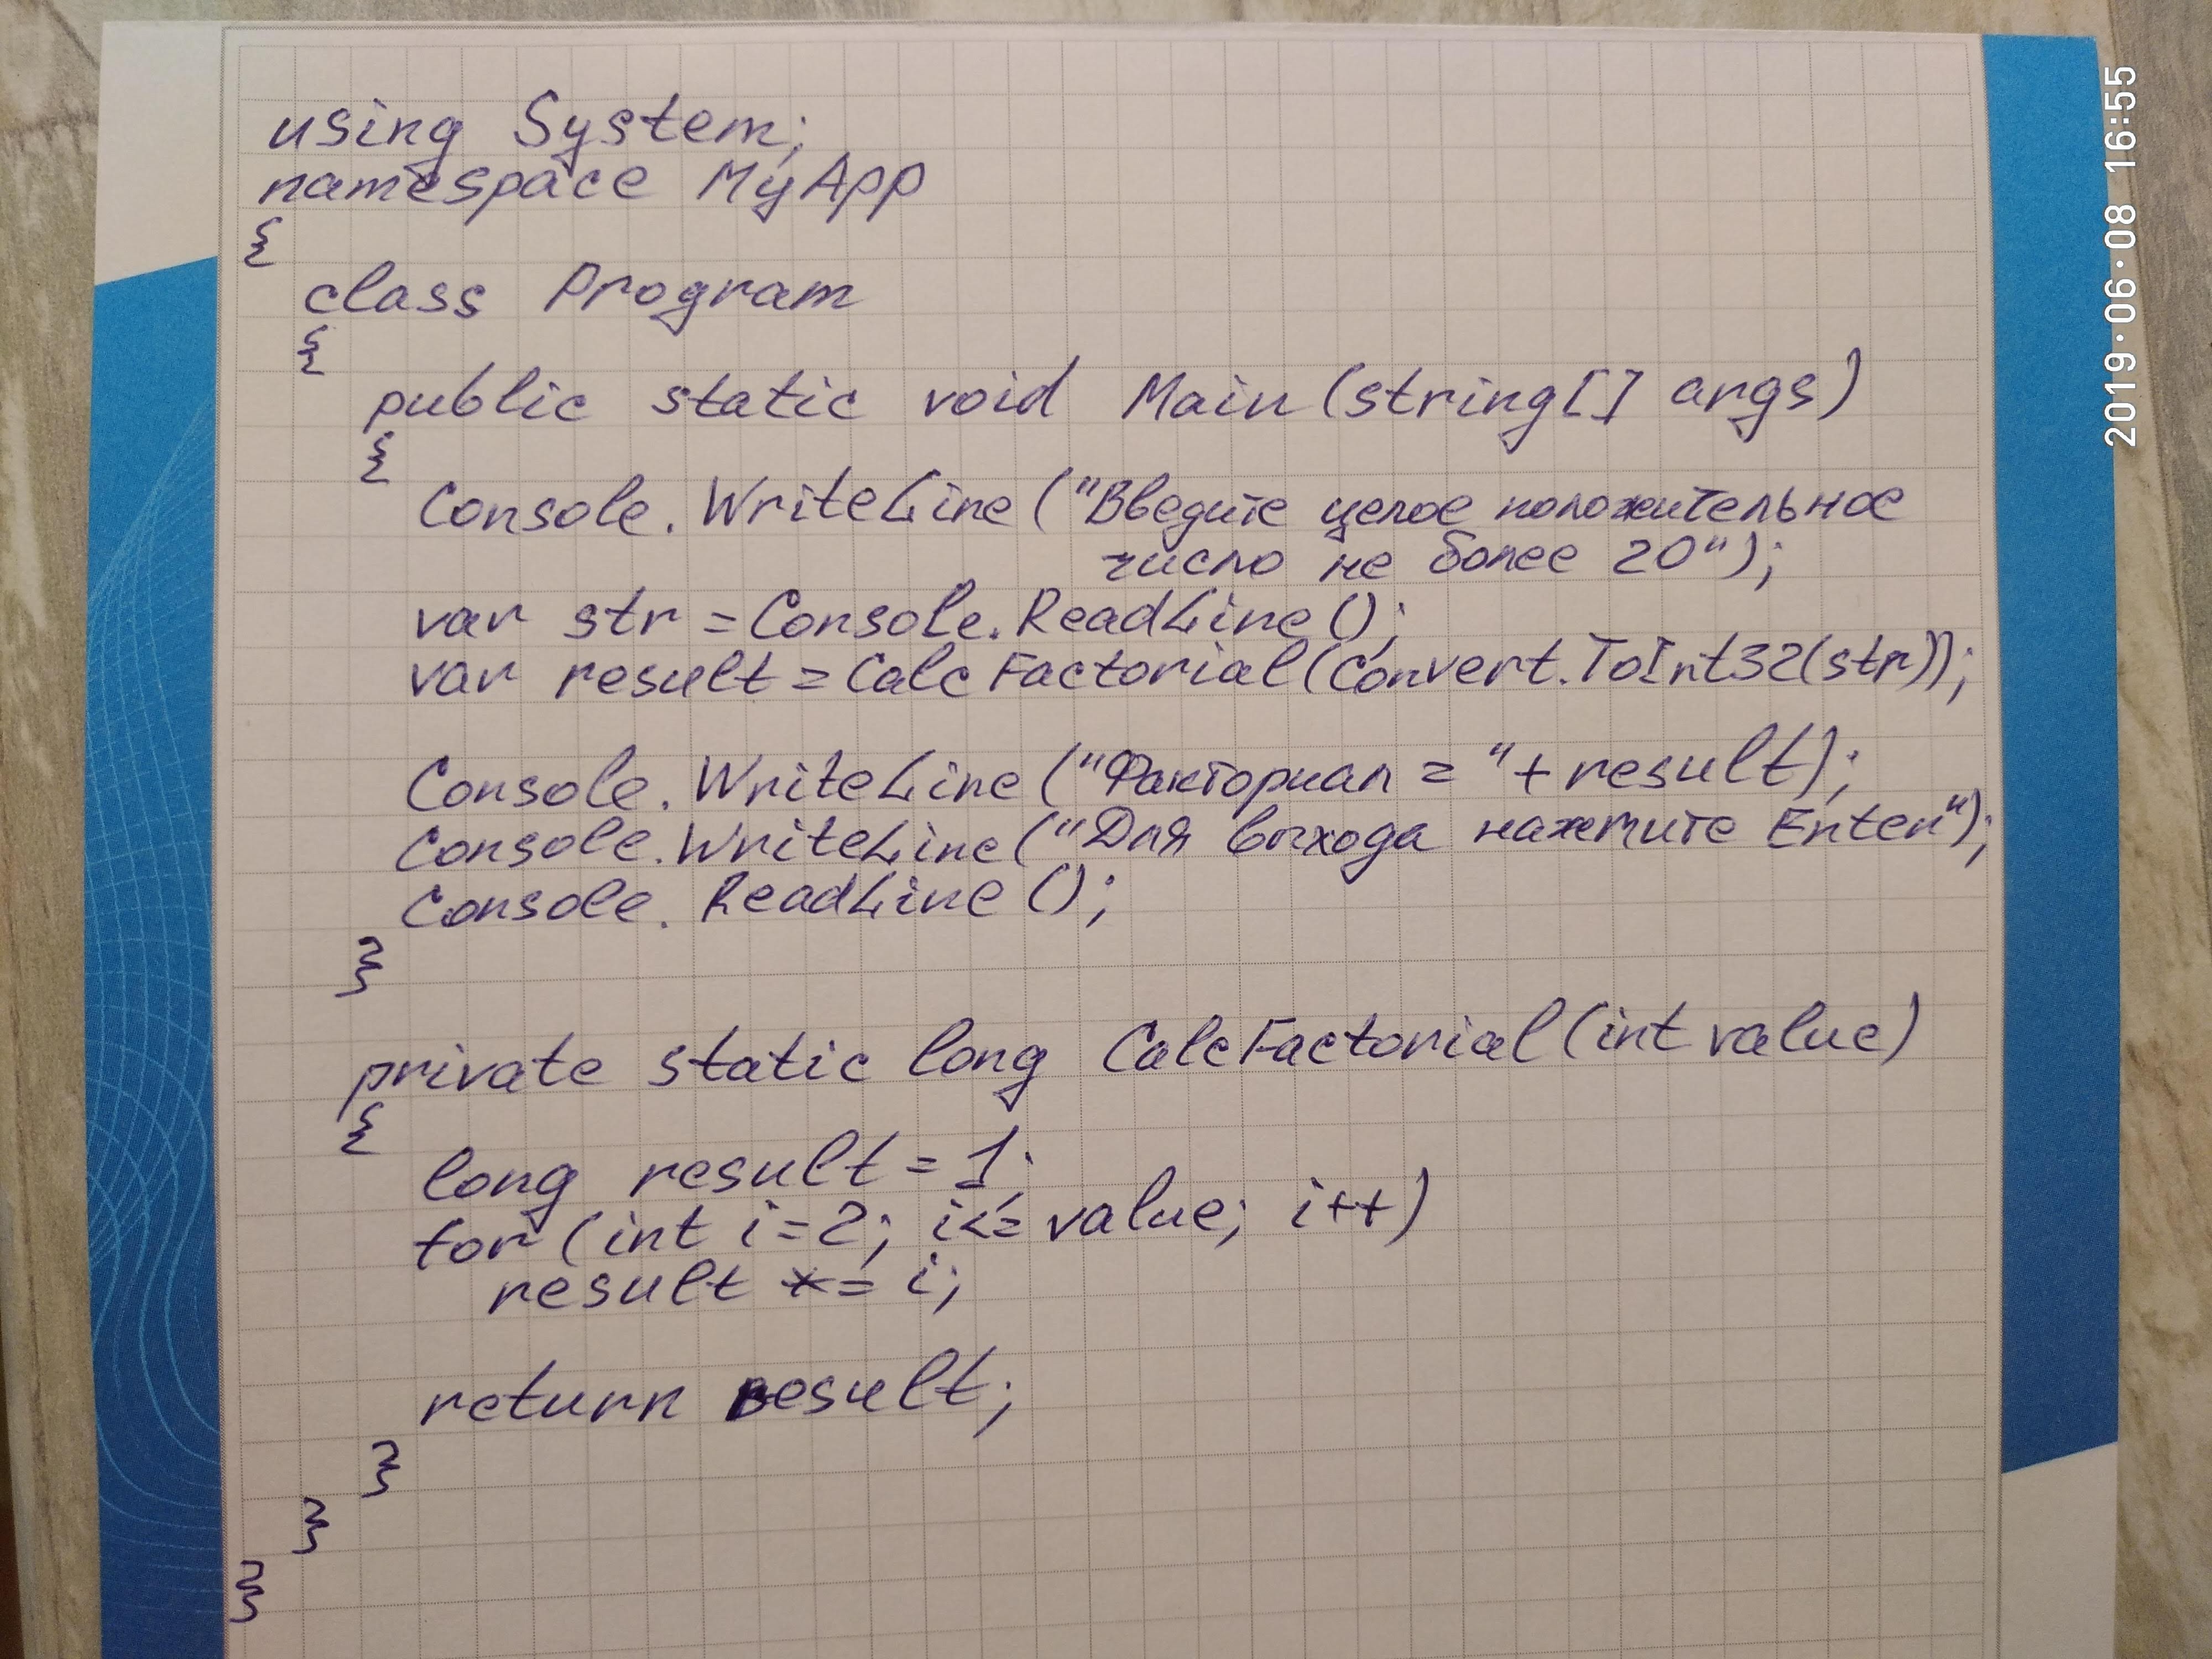 using System;
namespace MyApp
{
class Program
{
public static void Main(string[] args)
{
Console.WriteLine("Введите целое положительное
число не более 20");
var str = Console.ReadLine();
var result = CalcFactorial(Convert.ToInt32(str));
Console.WriteLine("Факториал = "+ result);
Console.WriteLine("Для выхода нажмите Enter");
Console.ReadLine();
}
private static long CalcFactorial(int value)
{
long result = 1;
for (int i=2; i<= value; i++)
result *= i;
return result;
}
}
}
2019·06·08 16:55